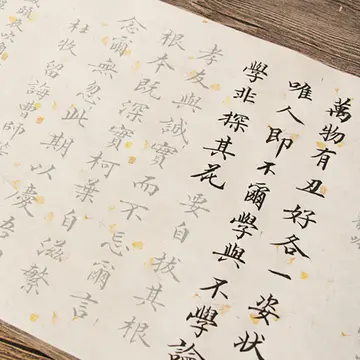 萬物有丑好各一姿狀
唯人即不爾學與不學論
學非探其花要自拔其根
孝友與誠實而不忘爾言
根本既深實柯葉自滋繁
念爾無忽此期以慶吾
杜牧留誨曹師等